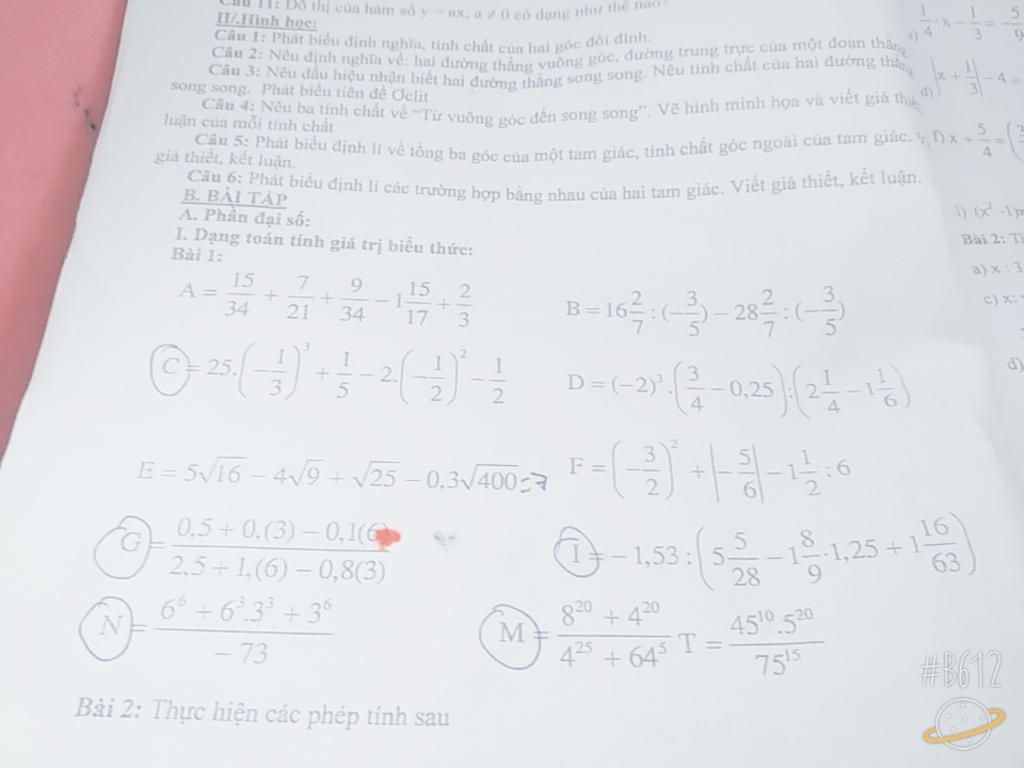 Câu 11: Đồ thị của hàm số y = ax, a ≠ 0 có dạng như thế nào?
II/.Hình học:
Câu 1: Phát biểu định nghĩa, tính chất của hai góc đối đỉnh.
Câu 2: Nêu định nghĩa về: hai đường thẳng vuông góc, đường trung trực của một đoạn thẳng
Câu 3: Nêu dấu hiệu nhận biết hai đường thẳng song song. Nêu tính chất của hai đường thẳng
song song. Phát biểu tiên đề Ơclit
Câu 4: Nêu ba tính chất về "Từ vuông góc đến song song". Vẽ hình minh họa và viết giả thiết,
luận của mỗi tính chất
Câu 5: Phát biểu định lí về tổng ba góc của một tam giác, tính chất góc ngoài của tam giác.
giả thiết, kết luận.
Câu 6: Phát biểu định lí các trường hợp bằng nhau của hai tam giác. Viết giả thiết, kết luận.
B. BÀI TẬP
A. Phần đại số:
I. Dạng toán tính giá trị biểu thức:
Bài 1:
A = 15/34 + 7/21 + 9/34 − 1 15/17 + 2/3
B = 16 2/7 : (−3/5) − 28 2/7 : (−3/5)
C = 25.(−1/3)³ + 1/5 − 2.(−1/2)² − 1/2
D = (−2)³.(3/4 − 0,25):(2 1/4 − 1 1/6)
E = 5√16 − 4√9 + √25 − 0,3√400 = 7
F = (−3/2)² + |−5/6| − 1 1/2 : 6
G = (0,5 + 0,(3) − 0,1(6)/(2,5 + 1,(6) − 0,8(3))
I = −1,53 : (5 5/28 − 1 8/9 · 1,25 + 1 16/63)
N = (6⁶ + 6³.3³ + 3⁶)/(−73)
M = (8²⁰ + 4²⁰)/(4²⁵ + 64⁵) T = (45¹⁰.5²⁰)/75¹⁵
Bài 2: Thực hiện các phép tính sau
1/4 · x − 1/3 = −5/9
d) |x + 1/3| − 4 =
f) x + 5/4 =
i) (x² -1)
Bài 2:
a) x : 3
c) x:
d)
#B612